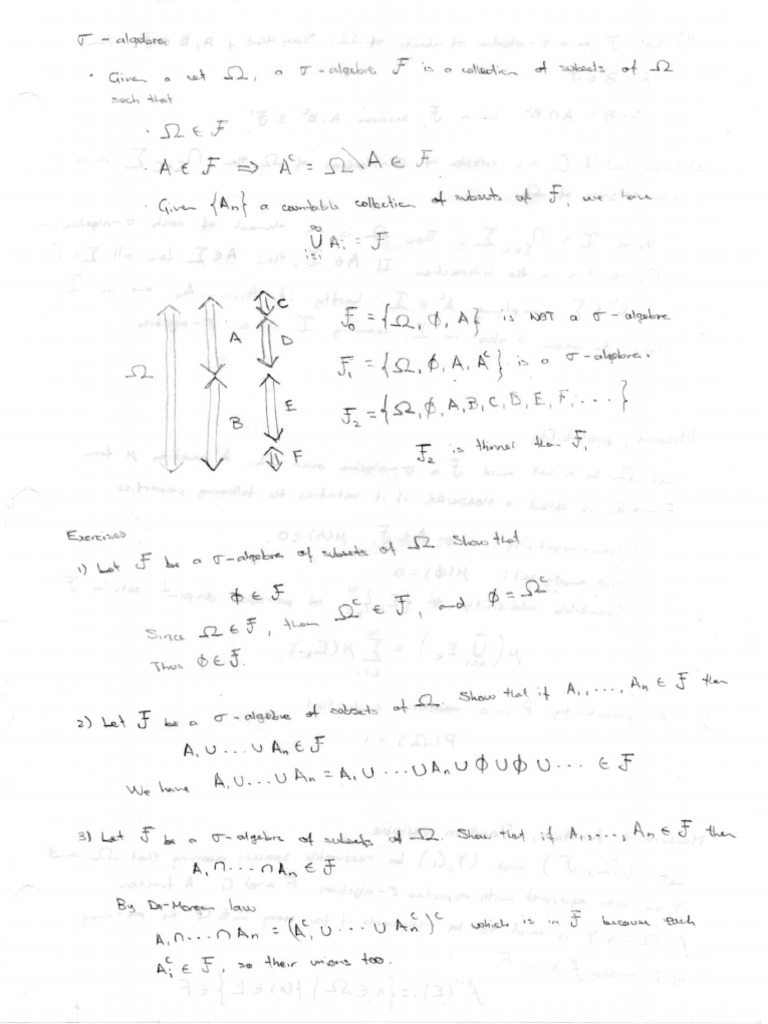 σ - algebra
• Given a set Ω, a σ-algebra F is a collection of subsets of Ω
such that
· Ω ∈ F
· A ∈ F ⟹ Aᶜ = Ω\A ∈ F
· Given {An} a countable collection of subsets of F, we have
∞
∪ Ai = F
i=1
C
A
D
Ω
E
B
F
F₀ = {Ω, ϕ, A} is NOT a σ-algebra
F₁ = {Ω, ϕ, A, Aᶜ} is a σ-algebra.
F₂ = {Ω, ϕ, A, B, C, D, E, F, ...}
F₂ is thinner than F₁
Exercises
1) Let F be a σ-algebra of subsets of Ω. Show that
ϕ ∈ F
Since Ω ∈ F, then Ωᶜ ∈ F, and ϕ = Ωᶜ.
Thus ϕ ∈ F.
2) Let F be a σ-algebra of subsets of Ω. Show that if A₁, ..., An ∈ F then
A₁ ∪ ... ∪ An ∈ F
We have A₁ ∪ ... ∪ An = A₁ ∪ ... ∪ An ∪ ϕ ∪ ϕ ∪ ... ∈ F
3) Let F be a σ-algebra of subsets of Ω. Show that if A₁, ..., An ∈ F then
A₁ ∩ ... ∩ An ∈ F
By De-Morgan law
A₁ ∩ ... ∩ An = (A₁ᶜ ∪ ... ∪ Anᶜ)ᶜ which is in F because each
Aiᶜ ∈ F, so their unions too.